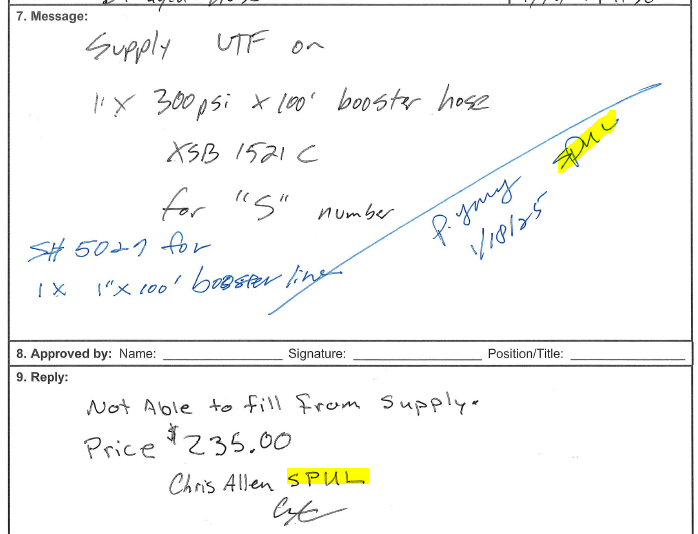 7. Message:
Supply UTF on
1" X 300psi x 100' booster hose
XSB 1521 C
for "S" number
SPUL
1/18/25
S# 5027 for
1 X 1" x 100' booster line
8. Approved by: Name: Signature: Position/Title:
9. Reply:
Not Able to fill from supply.
Price $235.00
Chris Allen SPUL